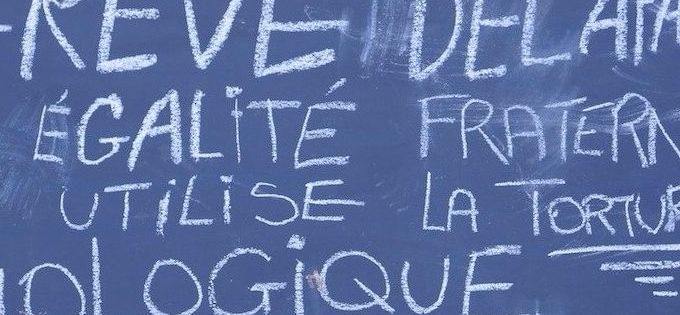 REVE DE LA
ÉGALITÉ FRATERN
UTILISE LA TORTUR
OLOGIQUE